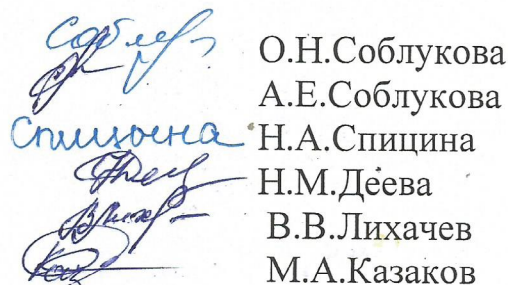 О.Н.Соблукова
А.Е.Соблукова
Спицына Н.А.Спицина
Н.М.Деева
В.В.Лихачев
М.А.Казаков